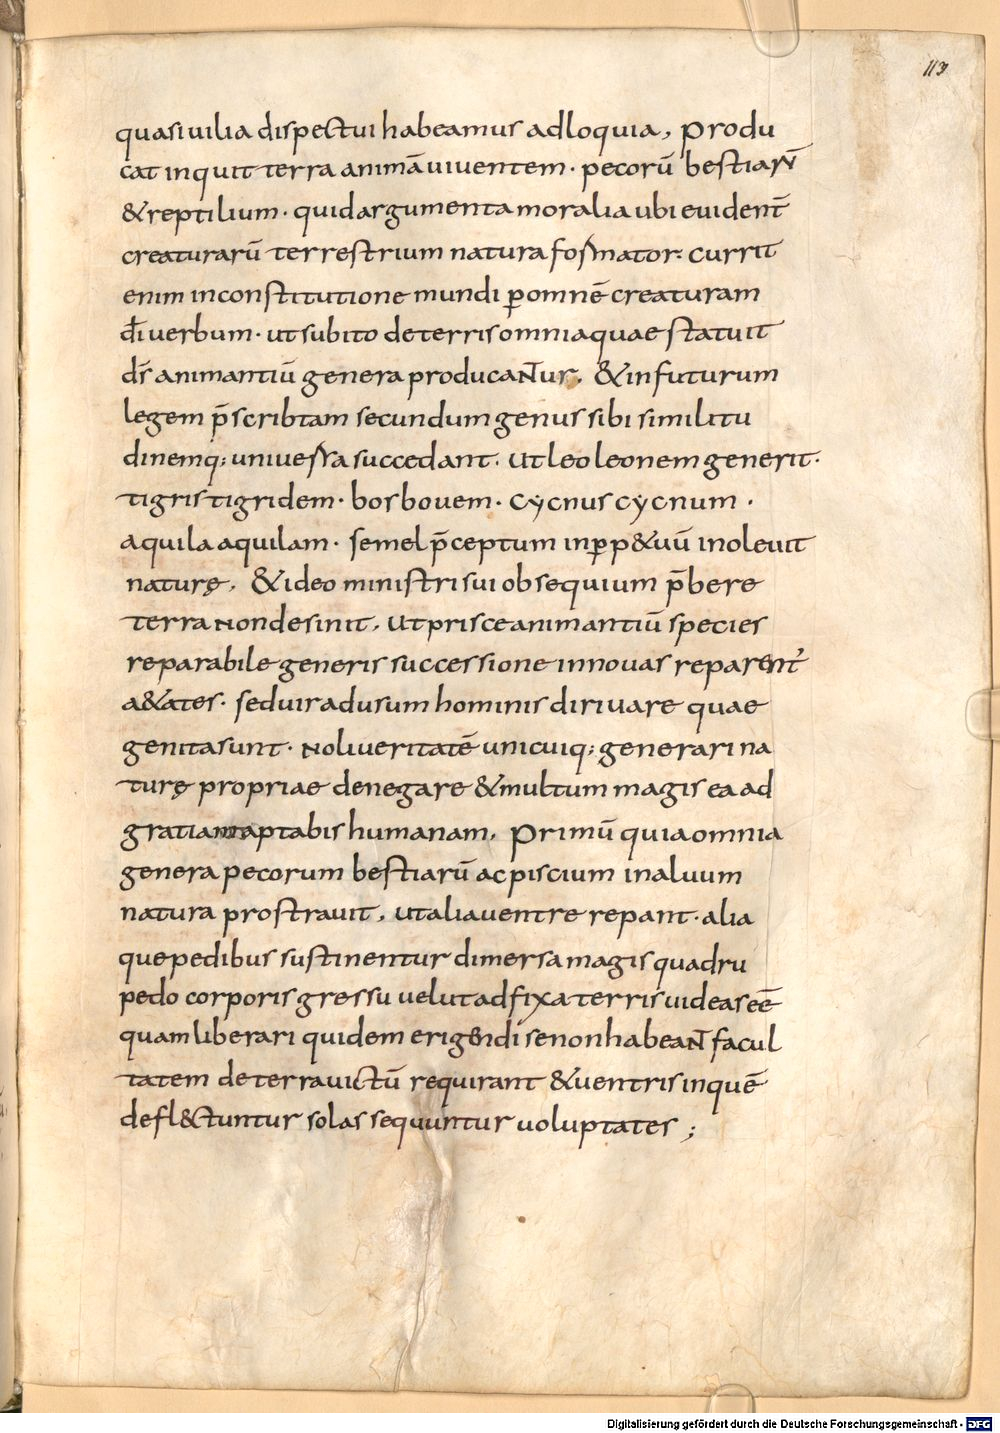 113
quasi uilia dispectui habeamus adloquia, Produ
cat inquit terra animā uiuentem · pecorū bestiarū
& reptilium · quid argumenta moralia ubi euident̄
creaturarū terrestrium natura formator · currit
enim in constitutione mundi ꝑ omnē creaturam
dī uerbum · ut subito de terris omnia quae statuit
ds̄ animantiū genera producant̄ur, & in futurum
legem p̄scribtam secundum genus sibi similitu
dinemq; uniuersa succedant · Ut leo leonem generit ·
tigris tigridem · bos bouem · cycnus cycnum ·
aquila aquilam · semel p̄ceptum in ꝑp&uū inoleuit
naturę, & ideo ministri sui obsequium p̄bere
terra non desinit, Ut prisce animantiū species
reparabile generis successione innouas reparent̄
a&ates · sed uir ad usum hominis diriuare quae
genita sunt · noli ueritatē unicuiq; generari na
turę propriae denegare & multum magis ea ad
gratiam aptabis humanam, Primū quia omnia
genera pecorum bestiarū ac piscium in aluum
natura prostrauit, ut alia uentre repant · alia
que pedibus sustinentur dimersa magis quadru
pedo corporis gressu uelut adfixa terris uideas eē
quam liberari quidem erigendi se non habeant̄ facul
tatem de terra uictū requirant & uentris in quē
defl&untur solas sequuntur uoluptates ;
Digitalisierung gefördert durch die Deutsche Forschungsgemeinschaft - DFG